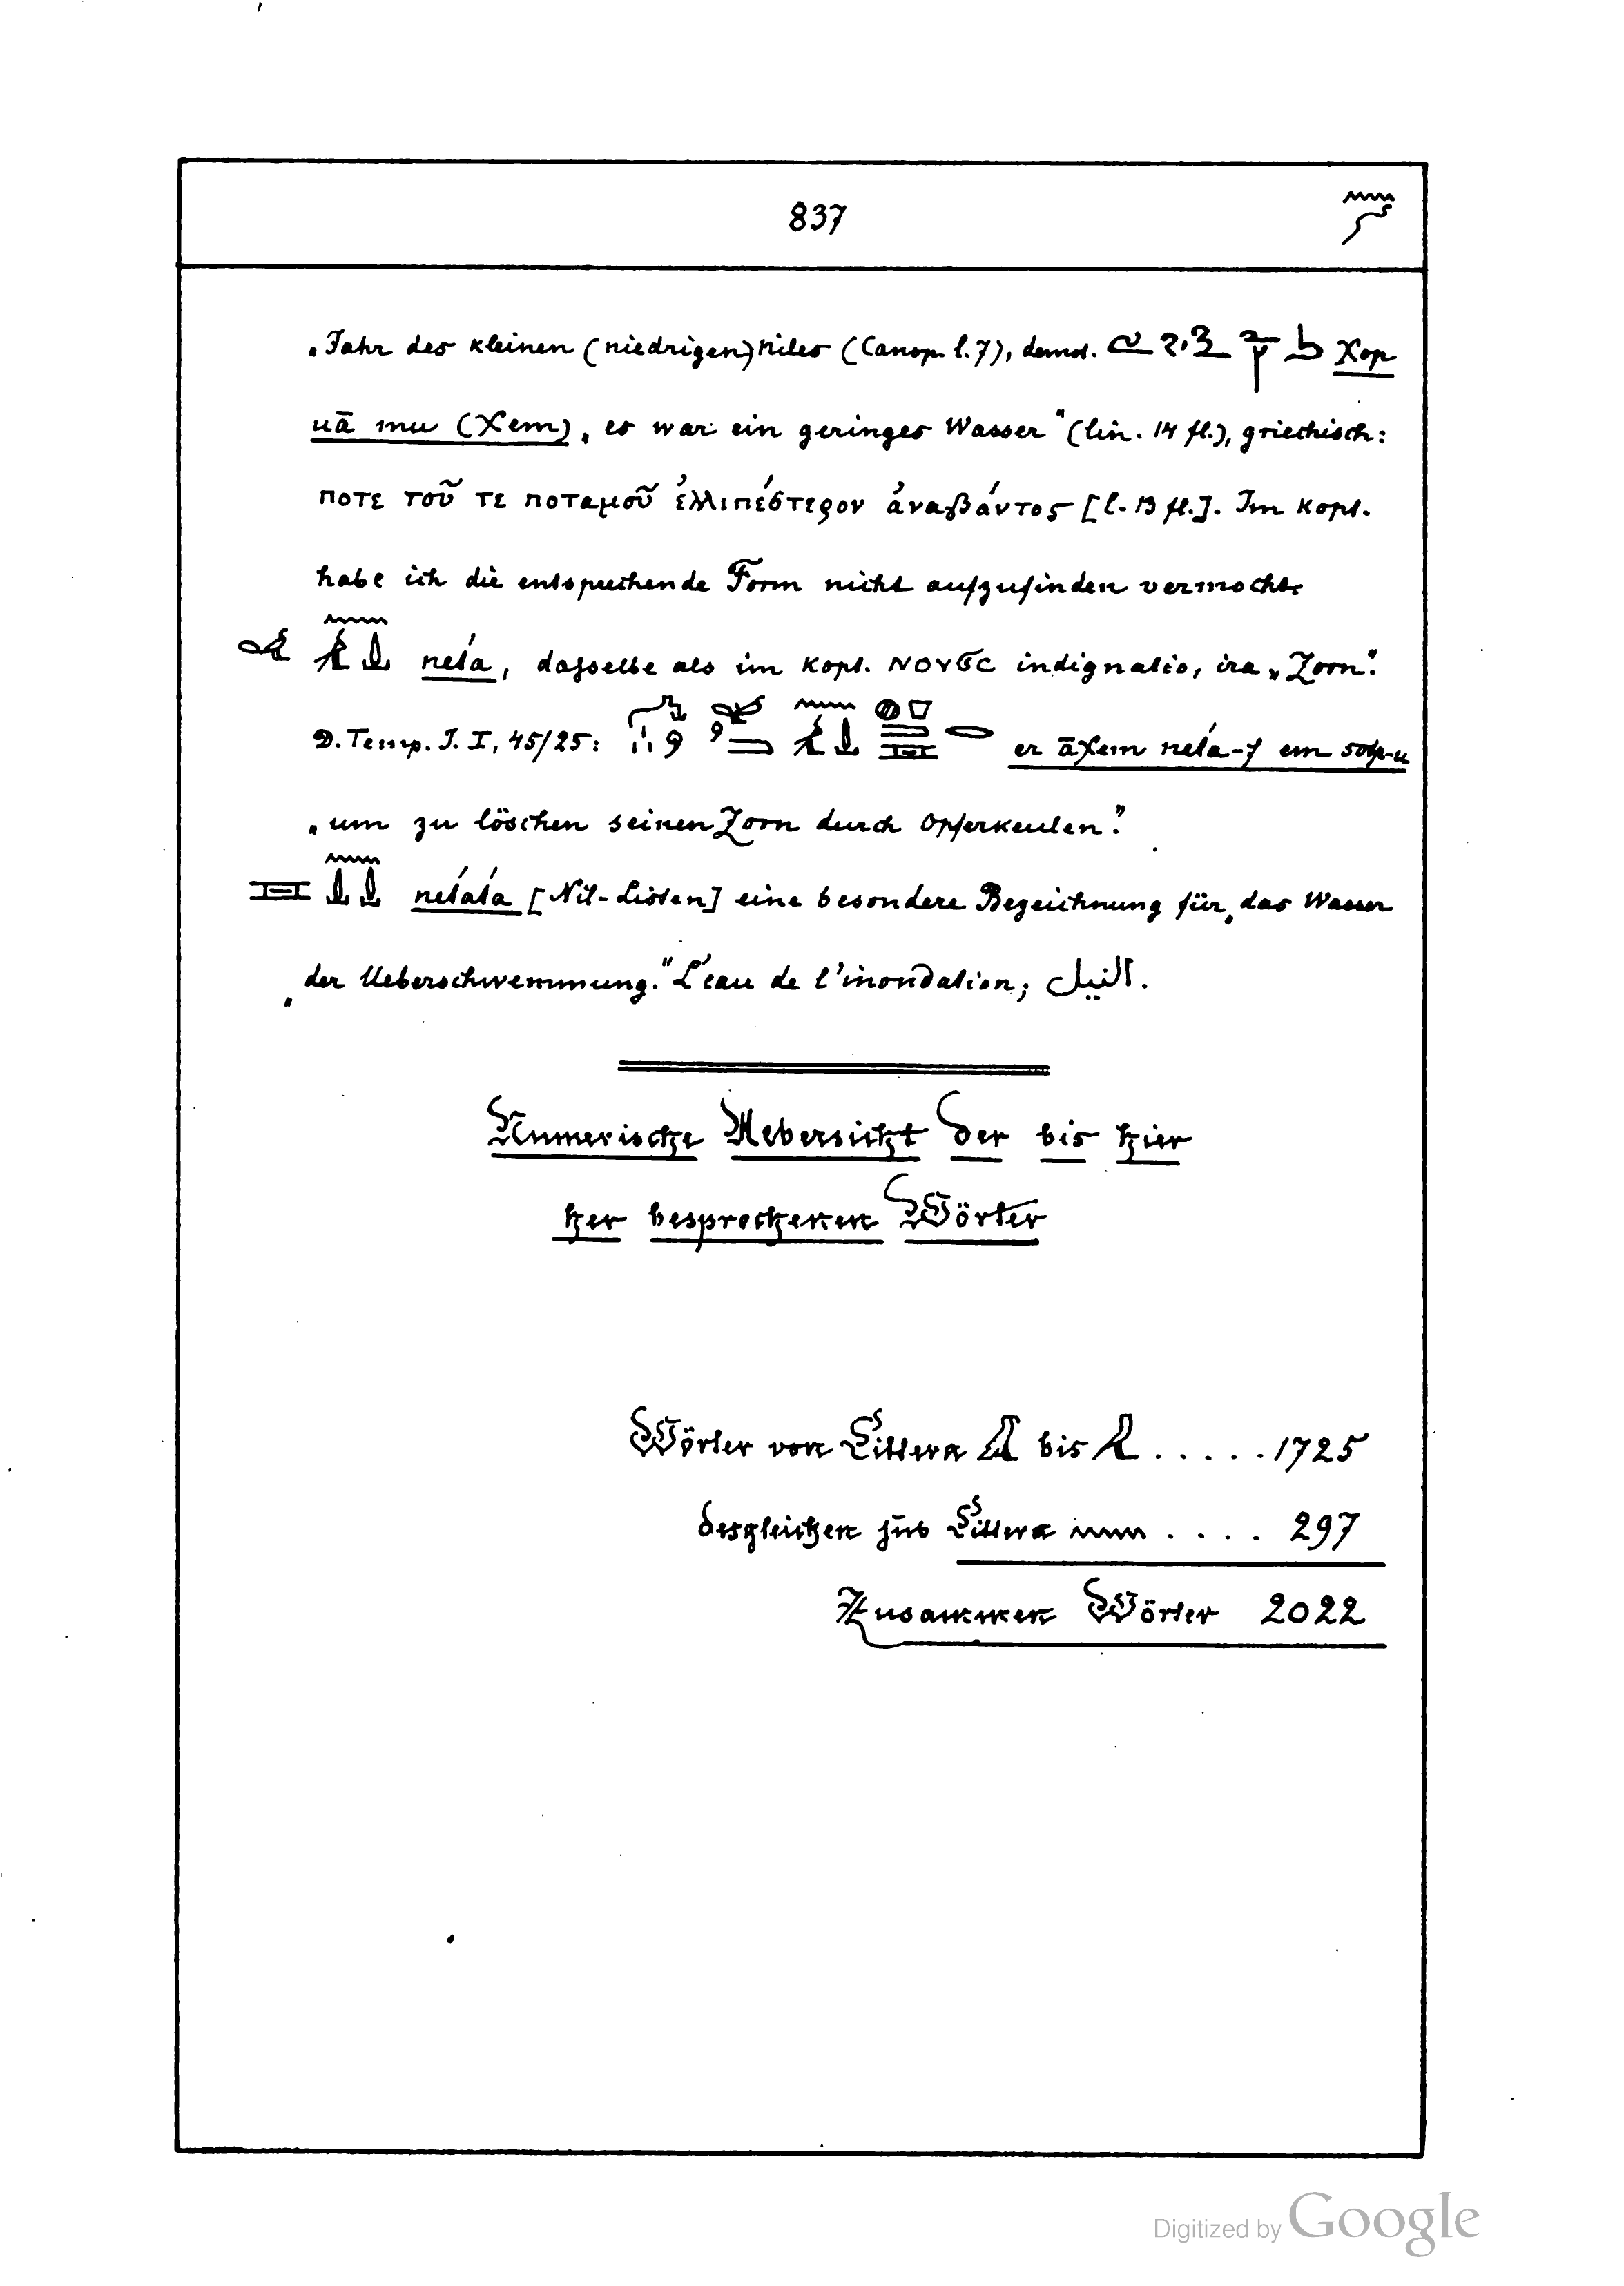 837
„Jahr des kleinen (niedrigen) Niles (Canop. l. 7), demot. χop
uā mu (χem) „es war ein geringes Wasser" (lin. 14 fl.), griechisch:
ποτε τοῦ τε ποταμοῦ ἐλλιπέστερον ἀναβάντος [l. 13 fl.]. Im Kopt.
habe ich die entsprechende Form nicht aufzufinden vermocht.
neśa, dasselbe als im Kopt. indignatio, ira „Zorn".
D. Temp. J. I, 45/25: er āχem neśa-f em
„um zu löschen seinen Zorn durch Opferkeulen".
[Nil-Listen] eine besondere Bezeichnung für „das Wasser
„der Ueberschwemmung." L'eau de l'inondation; النيل.
Numerische Uebersicht der bis hier
her besprochenen Wörter
Wörter von Littera bis ..... 1725
desgleichen sub Littera .... 297
Zusammen Wörter 2022
Digitized by Google